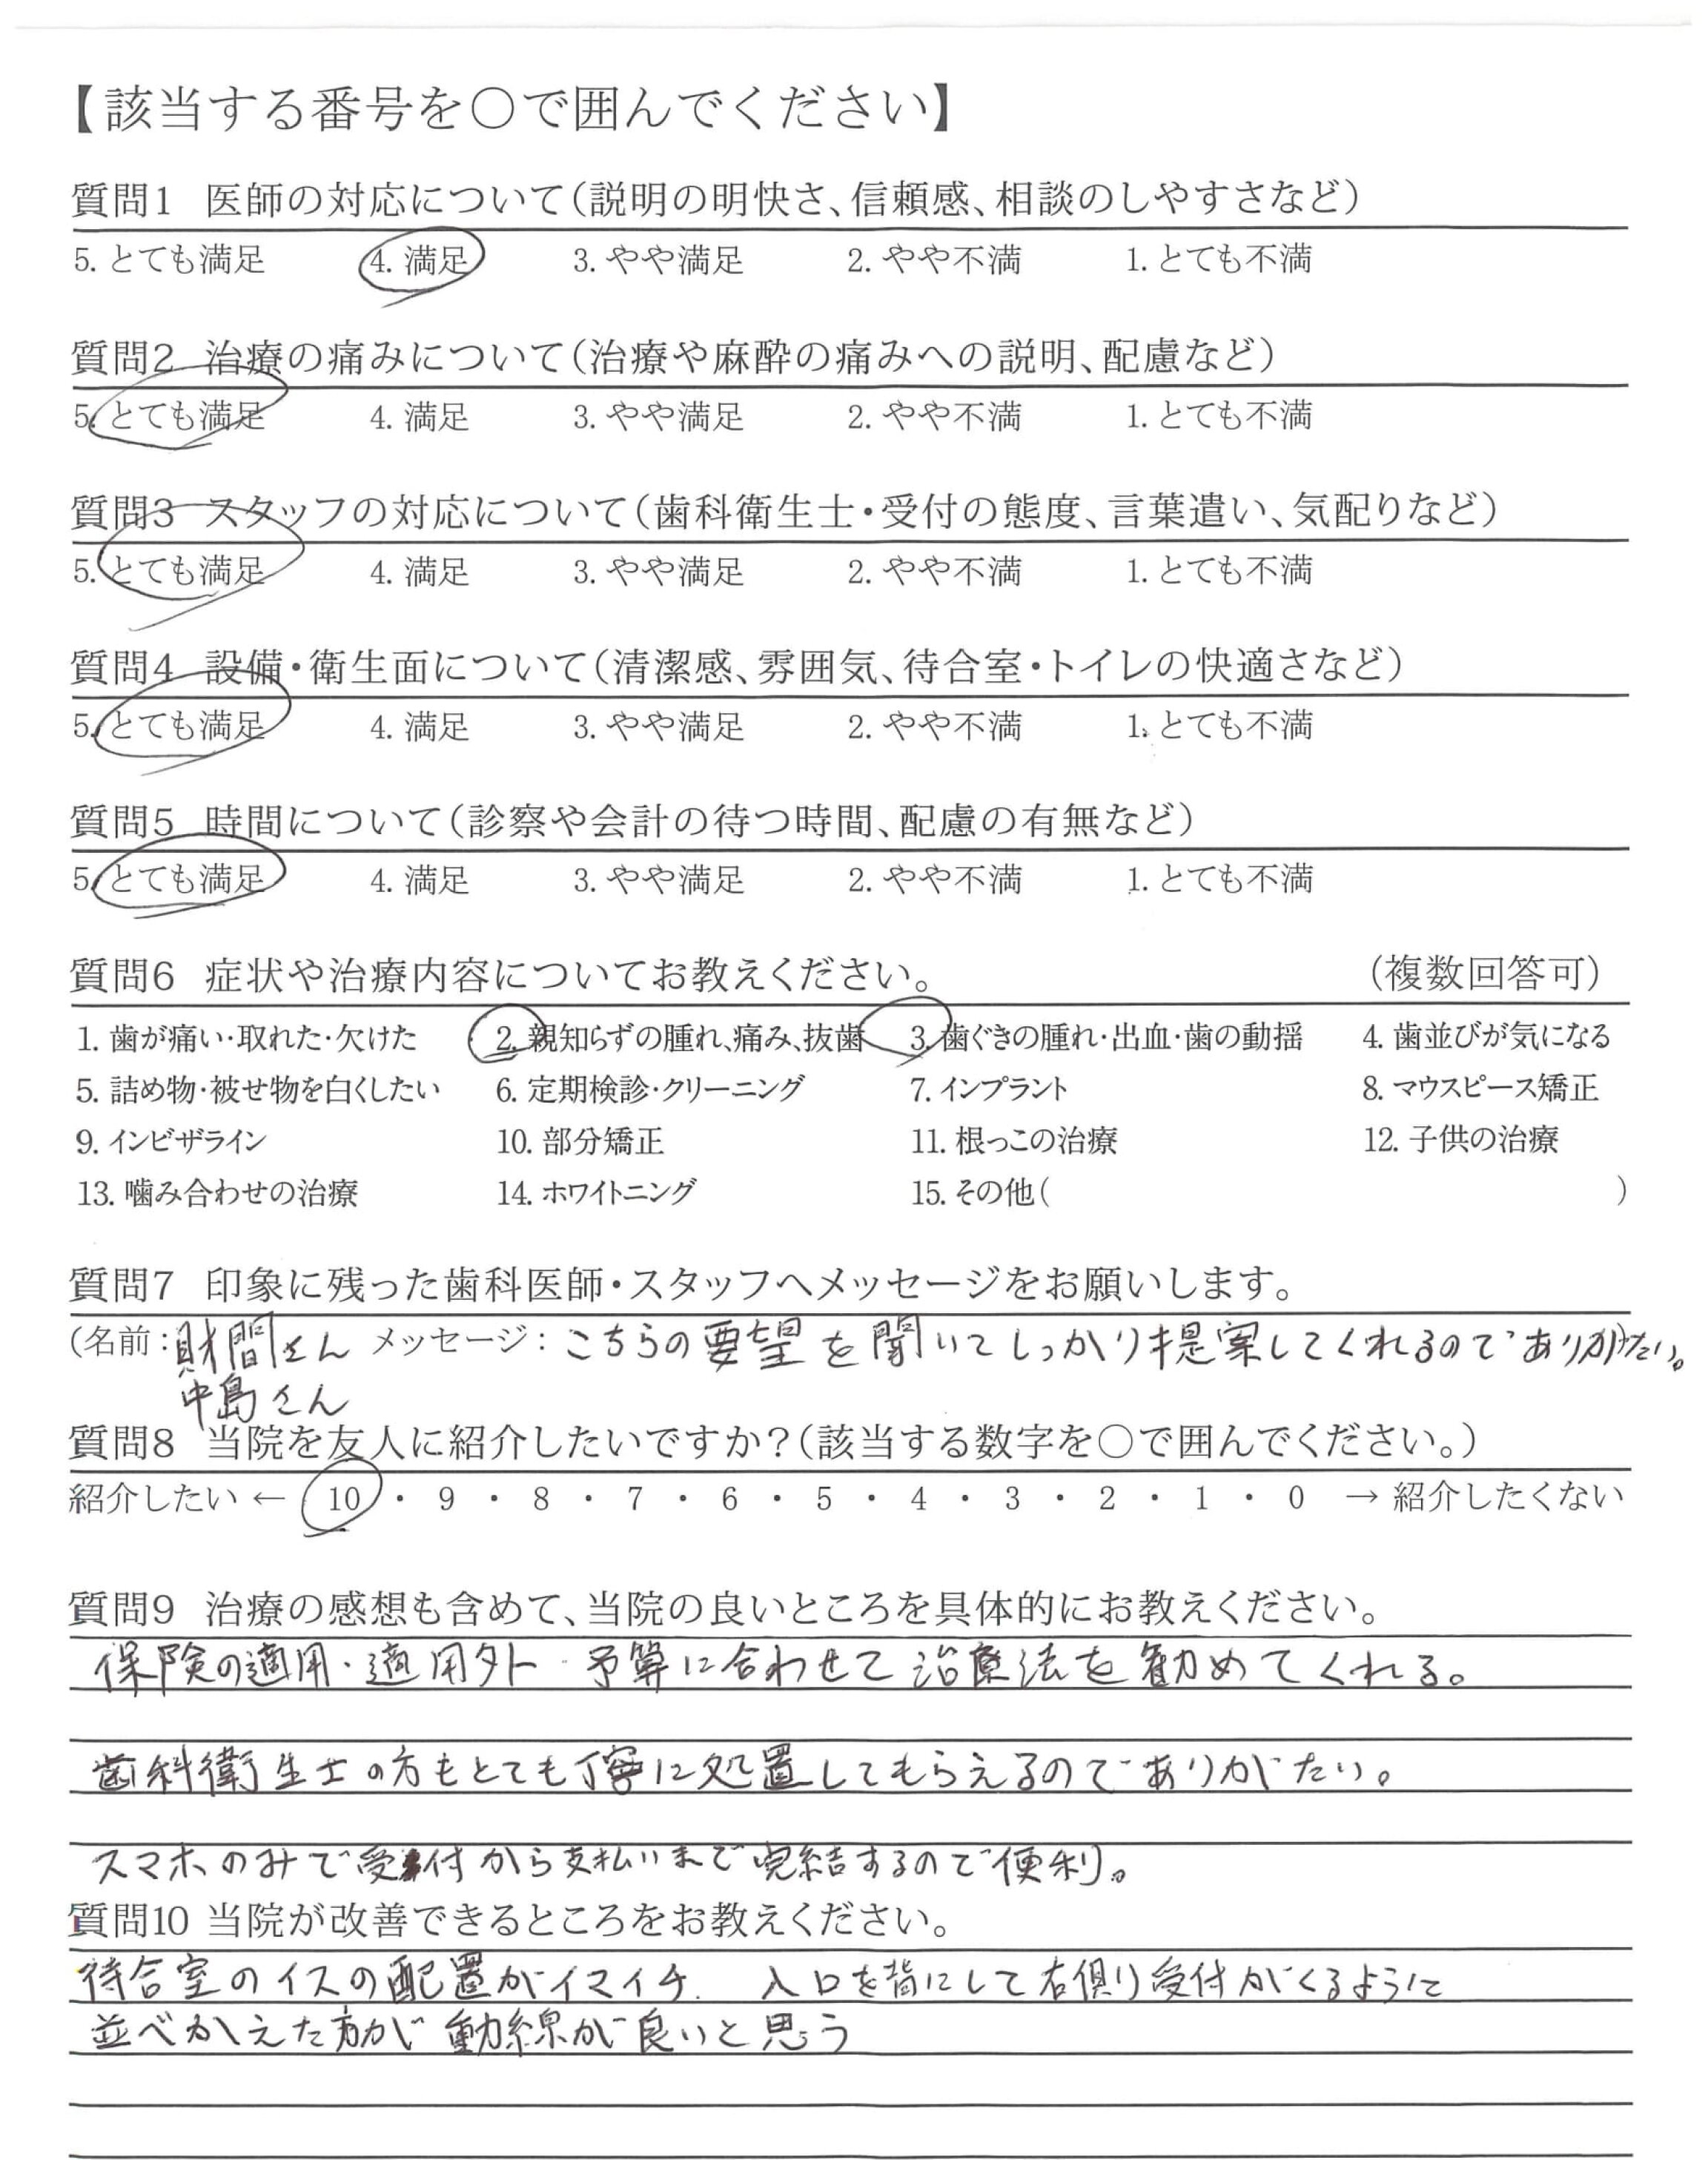 【該当する番号を○で囲んでください】
質問1 医師の対応について(説明の明快さ、信頼感、相談のしやすさなど)
5. とても満足 4. 満足 3. やや満足 2. やや不満 1. とても不満
質問2 治療の痛みについて(治療や麻酔の痛みへの説明、配慮など)
5. とても満足 4. 満足 3. やや満足 2. やや不満 1. とても不満
質問3 スタッフの対応について(歯科衛生士・受付の態度、言葉遣い、気配りなど)
5. とても満足 4. 満足 3. やや満足 2. やや不満 1. とても不満
質問4 設備・衛生面について(清潔感、雰囲気、待合室・トイレの快適さなど)
5. とても満足 4. 満足 3. やや満足 2. やや不満 1. とても不満
質問5 時間について(診察や会計の待つ時間、配慮の有無など)
5. とても満足 4. 満足 3. やや満足 2. やや不満 1. とても不満
質問6 症状や治療内容についてお教えください。 (複数回答可)
1. 歯が痛い・取れた・欠けた 2. 親知らずの腫れ、痛み、抜歯 3. 歯ぐきの腫れ・出血・歯の動揺 4. 歯並びが気になる
5. 詰め物・被せ物を白くしたい 6. 定期検診・クリーニング 7. インプラント 8. マウスピース矯正
9. インビザライン 10. 部分矯正 11. 根っこの治療 12. 子供の治療
13. 噛み合わせの治療 14. ホワイトニング 15. その他( )
質問7 印象に残った歯科医師・スタッフへメッセージをお願いします。
(名前:財間さん メッセージ:こちらの要望を聞いてしっかり提案してくれるのでありがたい。)
中島さん
質問8 当院を友人に紹介したいですか?(該当する数字を○で囲んでください。)
紹介したい ← 10 ・ 9 ・ 8 ・ 7 ・ 6 ・ 5 ・ 4 ・ 3 ・ 2 ・ 1 ・ 0 → 紹介したくない
質問9 治療の感想も含めて、当院の良いところを具体的にお教えください。
保険の適用・適用外・予算に合わせて治療法を勧めてくれる。
歯科衛生士の方もとても丁寧に処置してもらえるのでありがたい。
スマホのみで受付から支払いまで完結するので便利。
質問10 当院が改善できるところをお教えください。
待合室のイスの配置がイマイチ. 入口を背にして右側り受付がくるように
並べかえた方が動線が良いと思う